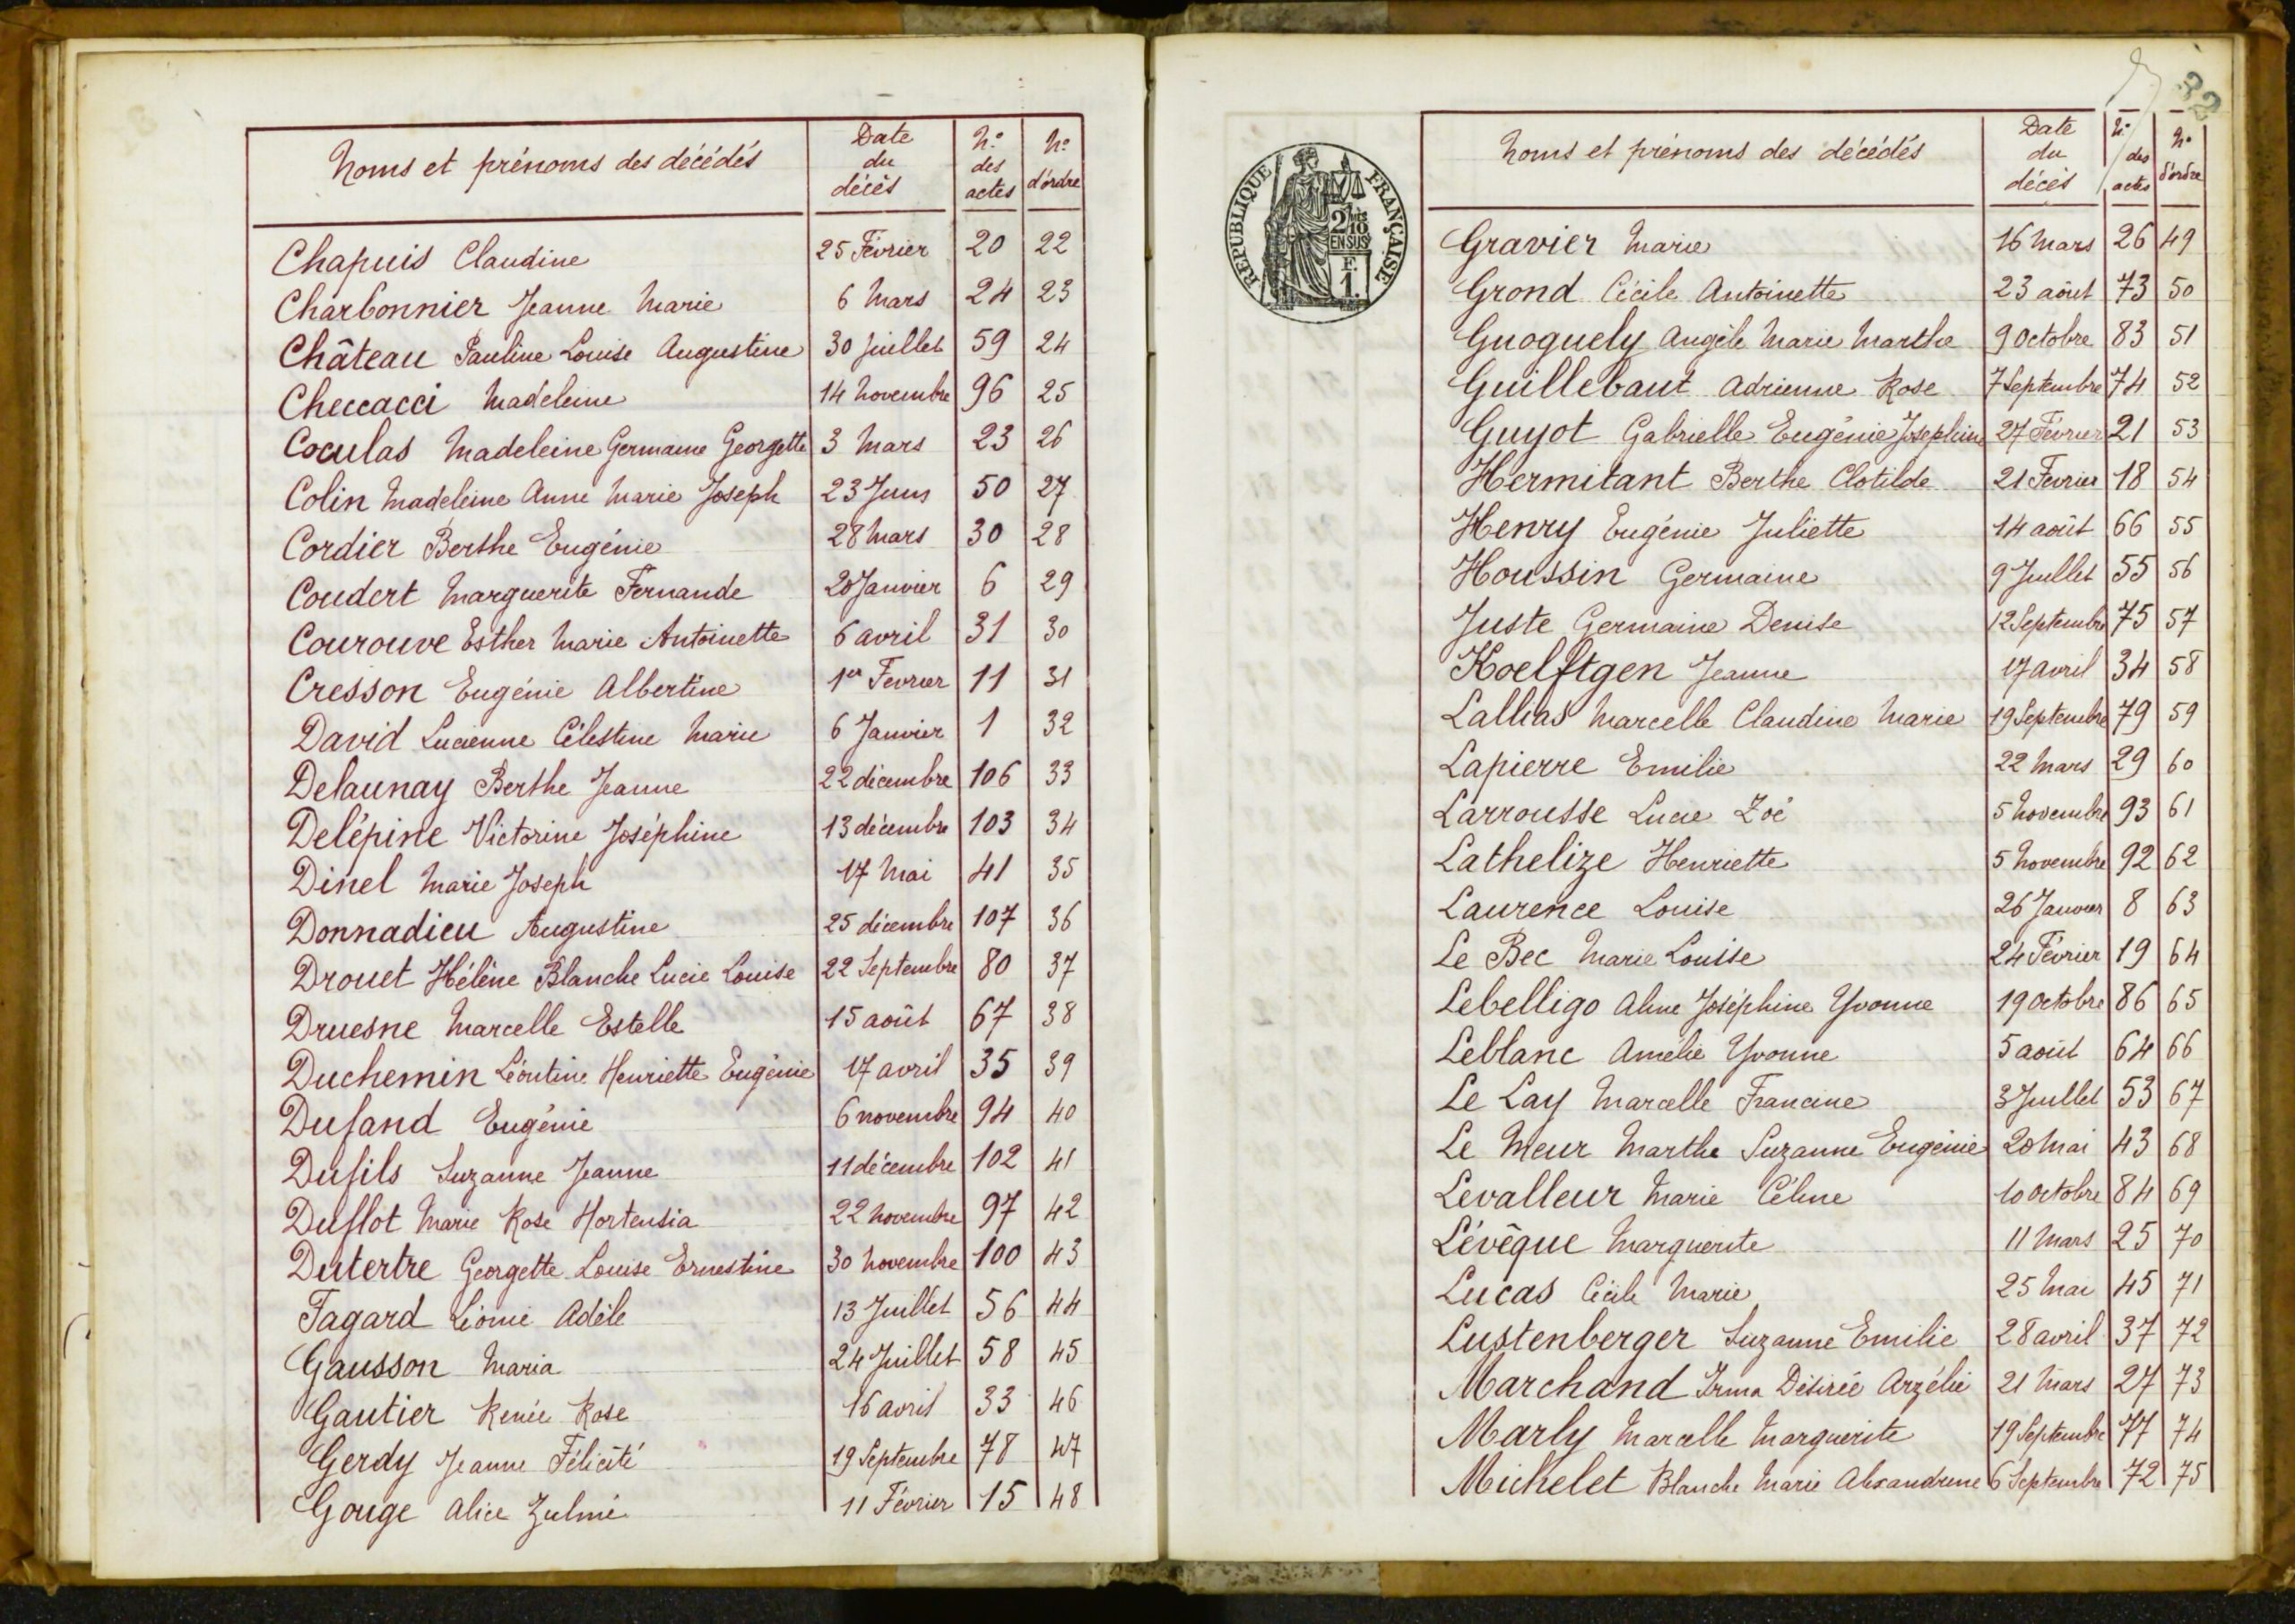 Noms et prénoms des décédés Date du décès N° des actes N° d'ordre
Chapuis Claudine 25 Février 20 22
Charbonnier Jeanne Marie 6 Mars 24 23
Château Pauline Louise Augustine 30 Juillet 59 24
Checcacci Madeleine 14 Novembre 96 25
Coculas Madeleine Germaine Georgette 3 Mars 23 26
Colin Madeleine Anne Marie Joseph 23 Juin 50 27
Cordier Berthe Eugénie 28 Mars 30 28
Coudert Marguerite Fernande 20 Janvier 6 29
Courouve Esther Marie Antoinette 6 avril 31 30
Cresson Eugénie Albertine 1er Fevrier 11 31
David Lucienne Célestine Marie 6 Janvier 1 32
Delaunay Berthe Jeanne 22 décembre 106 33
Delépine Victorine Joséphine 13 décembre 103 34
Dinel Marie Joseph 17 Mai 41 35
Donnadieu Augustine 25 décembre 107 36
Drouet Hélène Blanche Lucie Louise 22 Septembre 80 37
Druesne Marcelle Estelle 15 août 67 38
Duchemin Léontine Henriette Eugénie 17 avril 35 39
Dufand Eugénie 6 novembre 94 40
Dufils Suzanne Jeanne 11 décembre 102 41
Duflot Marie Rose Hortensia 22 Novembre 97 42
Dutertre Georgette Louise Ernestine 30 Novembre 100 43
Fagard Léonie Adèle 13 Juillet 56 44
Gausson Maria 24 Juillet 58 45
Gautier Renée Rose 16 avril 33 46
Gerdy Jeanne Félicité 19 Septembre 78 47
Gouge Alice Zulmé 11 Février 15 48
32
RÉPUBLIQUE FRANÇAISE
2/10 EN SUS
F. 1.
Noms et prénoms des décédés Date du décès N° des actes N° d'ordre
Gravier Marie 16 Mars 26 49
Grond Cécile Antoinette 23 août 73 50
Guoguely Angèle Marie Marthe 9 Octobre 83 51
Guillebaut Adrienne Rose 7 Septembre 74 52
Guyot Gabrielle Eugénie Joséphine 27 Février 21 53
Hermitant Berthe Clotilde 21 Fevrier 18 54
Henry Eugénie Juliette 14 août 66 55
Houssin Germaine 9 Juillet 55 56
Juste Germaine Denise 12 Septembre 75 57
Koelftgen Jeanne 17 avril 34 58
Lallias Marcelle Claudine Marie 19 Septembre 79 59
Lapierre Emilie 22 Mars 29 60
Larrousse Lucie Zoé 5 Novembre 93 61
Lathelize Henriette 5 Novembre 92 62
Laurence Louise 26 Janvier 8 63
Le Bec Marie Louise 24 Février 19 64
Lebelligo Aline Joséphine Yvonne 19 Octobre 86 65
Leblanc Amélie Yvonne 5 août 64 66
Le Lay Marcelle Francine 3 Juillet 53 67
Le Meur Marthe Suzanne Eugénie 20 Mai 43 68
Levalleur Marie Céline 10 Octobre 84 69
Lévêque Marguerite 11 Mars 25 70
Lucas Cécile Marie 25 Mai 45 71
Lustenberger Suzanne Emilie 28 avril 37 72
Marchand Irma Désirée Arzélie 21 Mars 27 73
Marly Marcelle Marguerite 19 Septembre 77 74
Michelet Blanche Marie Alexandrine 6 Septembre 72 75